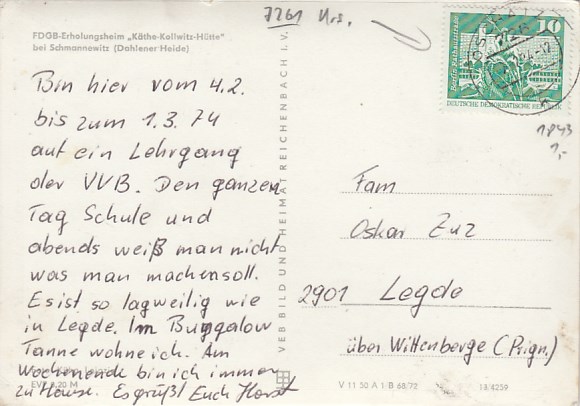 7261 Nrs.
FDGB-Erholungsheim „Käthe-Kollwitz-Hütte"
bei Schmannewitz (Dahlener Heide)
Bin hier vom 4.2.
bis zum 1.3.74
auf ein Lehrgang
der VVB. Den ganzen
Tag Schule und
abends weiß man nicht
was man machensoll.
Es ist so lagweilig wie
in Legde. Im Bungalow
Tanne wohne ich. Am
Wochenende bin ich immer
EVP 0,20 M
zu Hause. Es grüßt Euch Horst
VEB BILD UND HEIMAT REICHENBACH I. V.
10
Berlin, Rathausstraße
DEUTSCHE DEMOKRATISCHE REPUBLIK
1843
1,-
Fam
Oskar Zuz
2901 Legde
über Wittenberge (Prign.)
V 11 50 A 1 B 68/72
13/4259